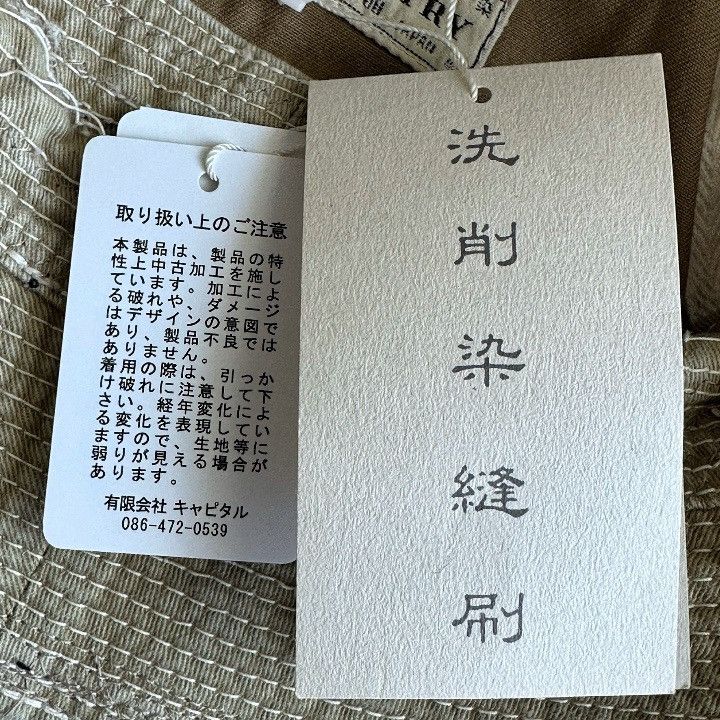 染
TRY
JAPAN
取り扱い上のご注意
本製品は、製品の特
性上中古加工を施し
ています。加工によ
る破れや、ダメージ
はデザインの意図で
あり、製品不良では
ありません。
着用の際は、引っか
け破れに注意して下
さい。経年変化によ
る変化を表現してい
ますので、生地等に
弱りが見える場合が
あります。
有限会社 キャピタル
086-472-0539
洗
削
染
縫
刷